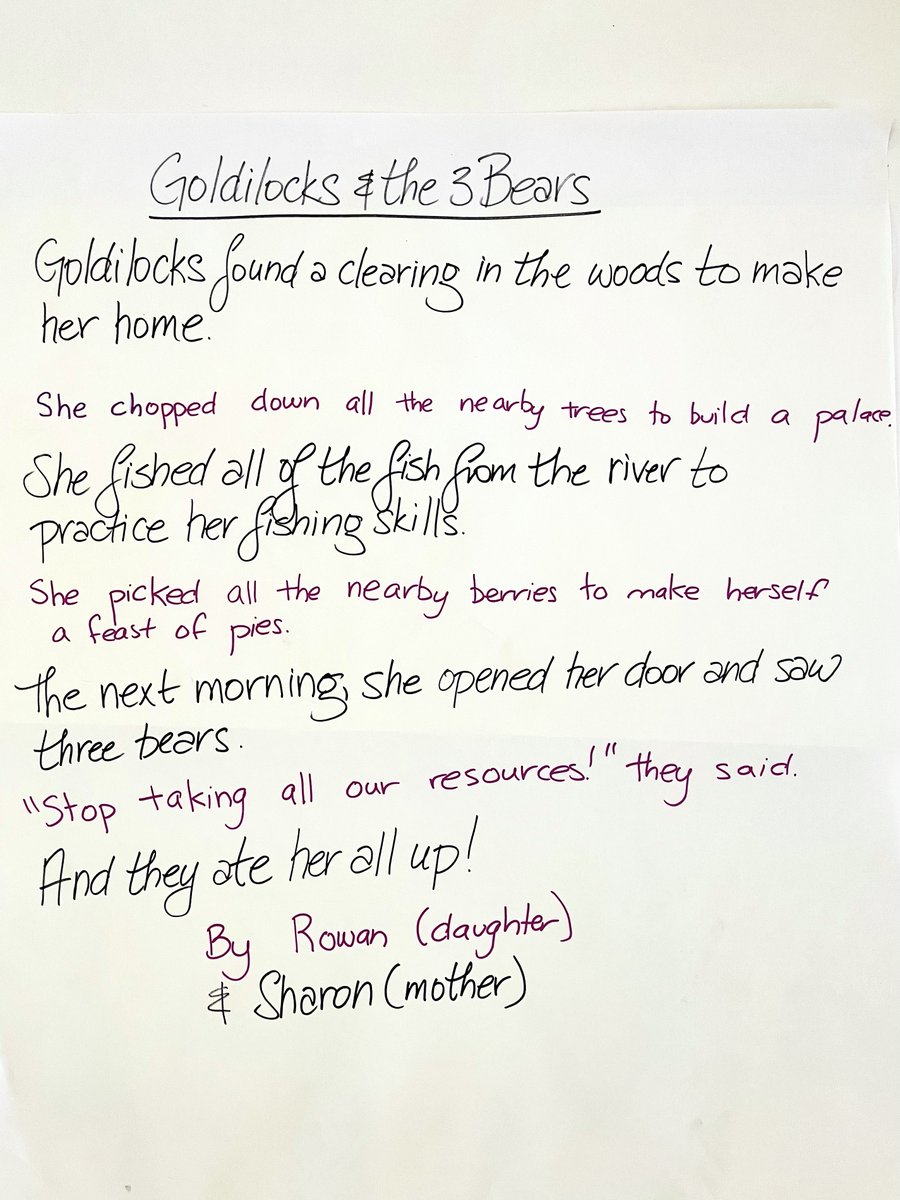 Goldilocks & the 3 Bears
Goldilocks found a clearing in the woods to make
her home.
She chopped down all the nearby trees to build a palace.
She fished all of the fish from the river to
practice her fishing skills.
She picked all the nearby berries to make herself
a feast of pies.
The next morning, she opened her door and saw
three bears.
"Stop taking all our resources!" they said.
And they ate her all up!
By Rowan (daughter)
& Sharon (mother)